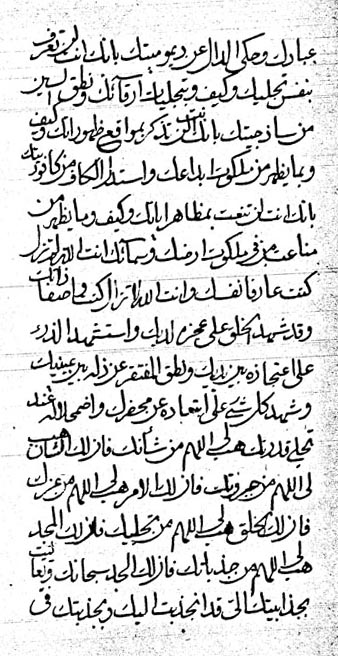 عبادك وحكى الدال عن ديموميتك بانك انت لن تعرف
بنفس تجليك وكيف وبتجليك ارقائك ونطق لسان
من ساذجيتك بانك انت لن تذكر بمواقع ظهورك وكيف
وبما يظهر من ملكوت ابداعك واستدل الكاف من كافوريتك
بانك انت لن تنعت بمظاهر اياتك وكيف وما يظهر من
مناعت من في ملكوت ارضك وسمائك انت الله لم تزل
كنت عارفا نفسك وانت الله لا تزال كنت واصفا ذاتك
وقد شهد الخلق على عجزه لديك واستشهد الذر
على بين يديك ونطق المفتقر عن ذله بين عينيك
وشهد كل شيء على ابتعاده عن محضرك واضمحلاله عند
تجلي قدرتك هب لي اللهم من شأنك فان لك الشان هب
لي اللهم من جبروتك فان لك الامر هب لي اللهم من عزك
فان لك الخلق هب لي اللهم من تجليك فان لك المجد
هب لي اللهم من جذباتك فان لك المجد سبحانك وتعاليت
بجذابيتك التي قد انجذبت اليك وبجذبتك في